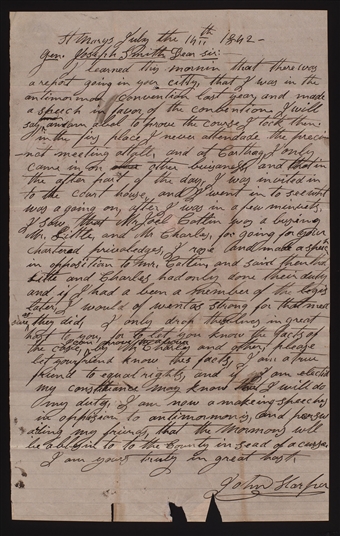 St Marys July the 14th 1842-
Gen. Joseph Smith Dear sir:
I learned this mornin that there was
a report going in your citty, that I was in the
antimormon convention last year, and made
a speech in favor of the convention I will
say, and am abel to prove the course I took then.
In the first place I never attended the precin
nct meeting atall, and at Carthag I only
came in on other buisness, and that in
the after part of the day, I was invited in
to the court house, and I went in to see what
was a going on, after I was in a few minuets
I saw that Mr. Joel Catlin was a busing
Mr. Little, and Mr. Charles, for going for your
chartered priveledges, I rose and made a speech
in opposition to Mr. Catlin, and said that
Little and Charles had only done their duty
and if I had a been a member of the legis
lature, I would of went as strong for that measure
as they did, I only drop these lines in great
hast to you, to let you know the facts of
the case,
let your friends know this facts, I am a true
friend to equal rights, and if I am elected
my constituance may know that I will do
my duty, I am now a making speeches
in opposion to antimormonism, and
my friends, that the Mormons will
be a blessing to the County in sted of a curse,
I am yours truly in great hast.
John Harper